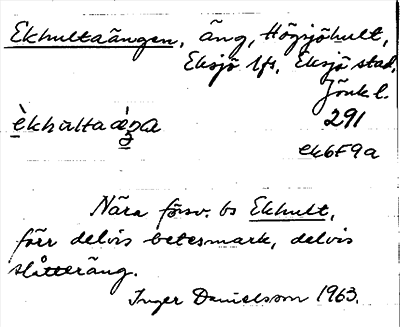 Ekhultaängen, äng, Högsjöhult,
Eksjö lfs, Eksjö stad,
Jönk l.
291
ek6F9a
Nära försv. bs Ekhult,
förr delvis betesmark, delvis
slåtteräng.
Inger Danielsson 1963.